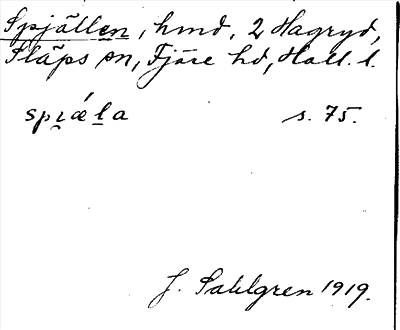 Spjällen, hmd, 2 Hagryd,
Släps sn, Fjäre hd, Hall. l.
spi̯ǽl̠a s. 75.
J. Sahlgren 1919.